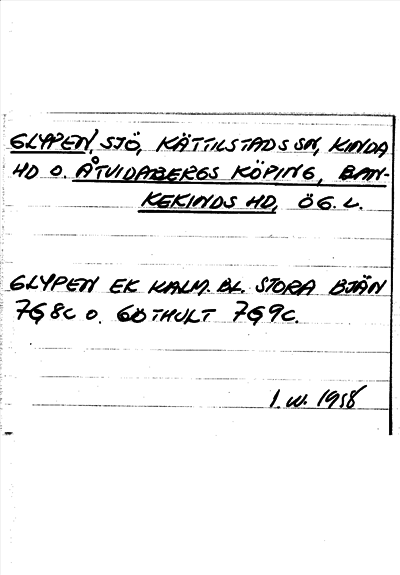 GLYPEN, SJÖ, KÄTTILSTADS SN, KINDA
HD O. ÅTVIDABERGS KÖPING, BAN-
KEKINDS HD, ÖG. L.
GLYPEN EK KALM. BL. STORA BJÄN
7G8c O. GÖTHULT 7G9c.
I. W. 1958